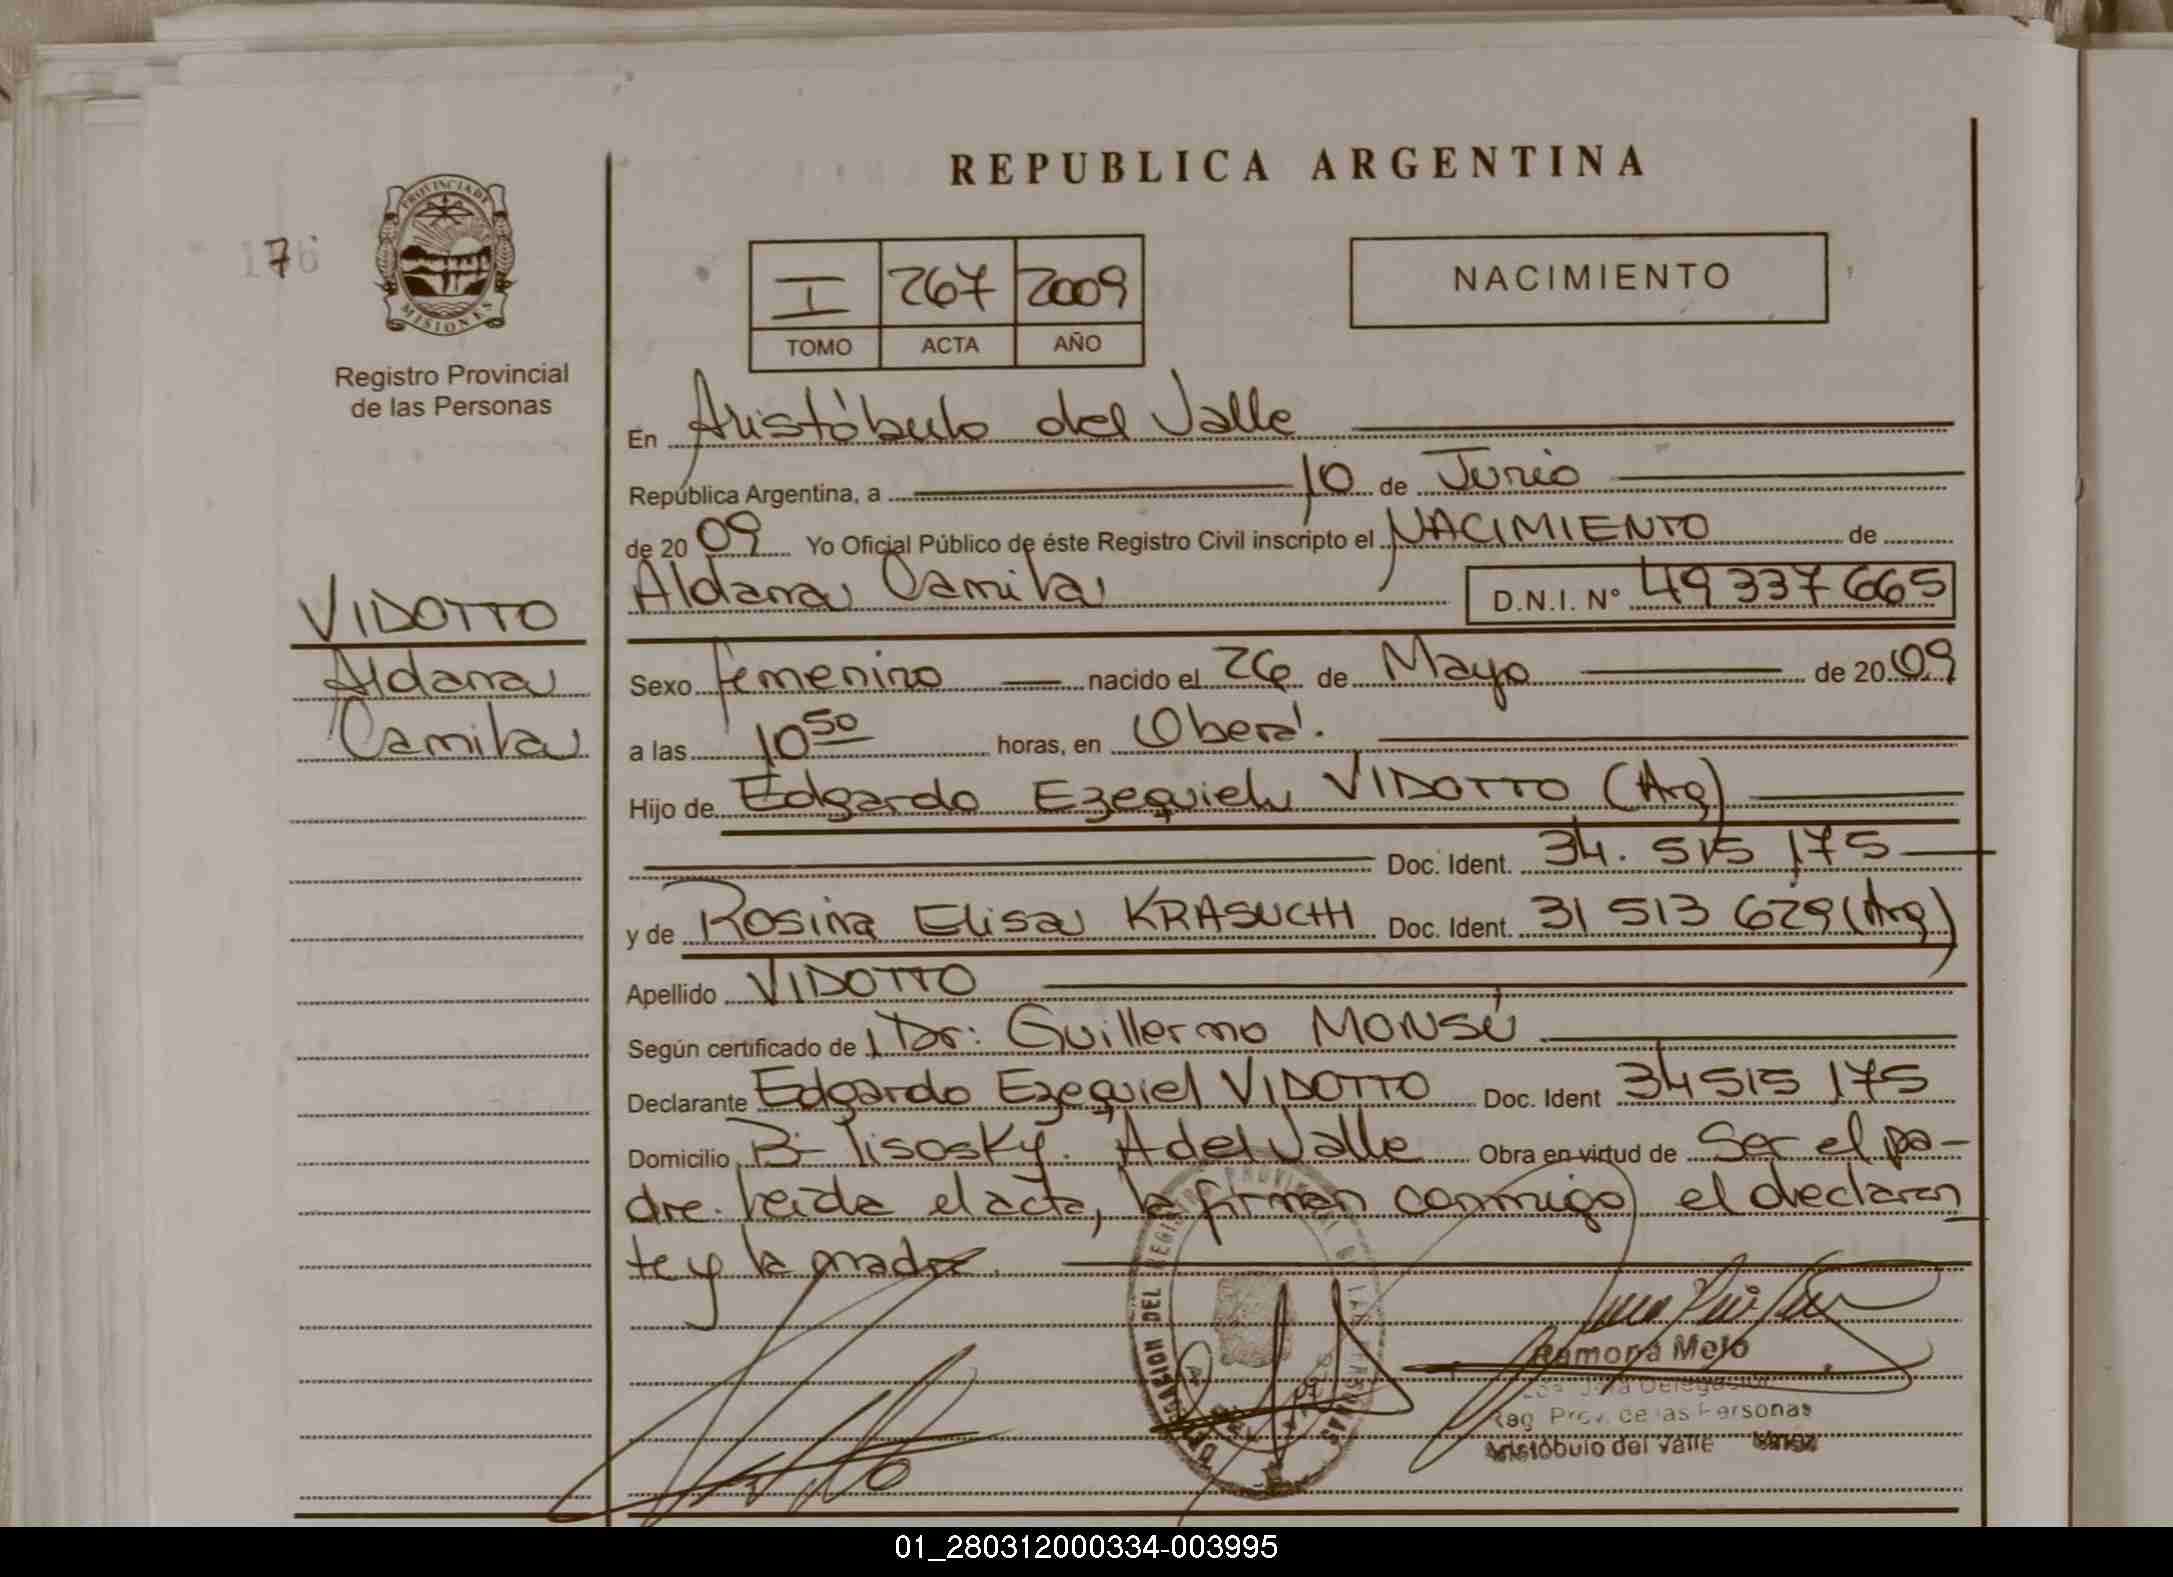 REPUBLICA ARGENTINA
7
PROVINCIA DE
MISIONES
Registro Provincial
de las Personas
I 267 2009
TOMO ACTA AÑO
NACIMIENTO
En Aristóbulo del Valle
República Argentina, a 10 de Junio
de 2009 Yo Oficial Público de éste Registro Civil inscripto el NACIMIENTO de
Aldana Camila D.N.I. Nº 49337665
VIDOTTO
Aldana
Camila
Sexo femenino nacido el 26 de Mayo de 2009
a las 10 50 horas, en Oberá.
Hijo de Edgardo Ezequiel VIDOTTO (Arg)
Doc. Ident. 34.515 175
y de Rosina Elisa KRASUCHI Doc. Ident. 31 513 629 (Arg)
Apellido VIDOTTO
Según certificado de Dr: Guillermo MONSÚ
Declarante Edgardo Ezequiel VIDOTTO Doc. Ident 34515 175
Domicilio Bº A del Valle Obra en virtud de Ser el pa-
dre. Leída el acta, la firman conmigo el declaran
te y la madre.
Ramona Melo
Reg. Prov. de las Personas
Aristóbulo del Valle
01_280312000334-003995